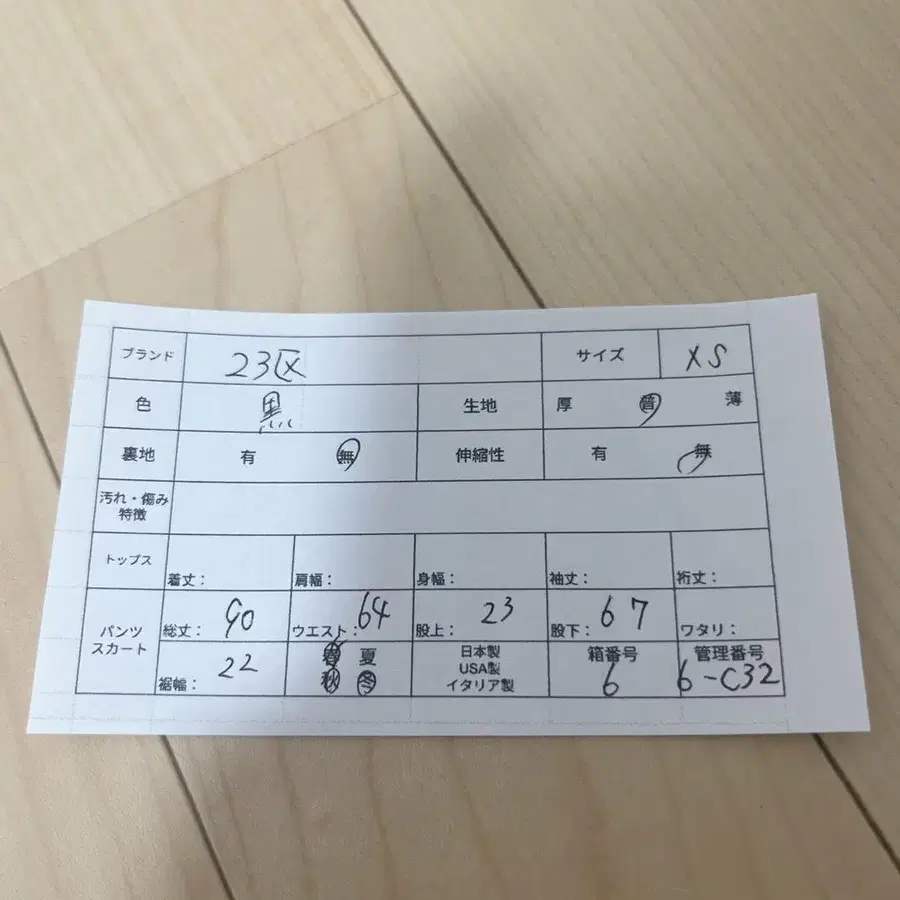 ブランド 23区 サイズ XS
色 黒 生地 厚 普 薄
裏地 有 無 伸縮性 有 無
汚れ・傷み
特徴
トップス 着丈： 肩幅： 身幅： 袖丈： 裄丈：
パンツ
スカート
総丈： 90 ウエスト： 64 股上： 23 股下： 67 ワタリ：
裾幅： 22
春 夏
秋 冬
日本製
USA製
イタリア製
箱番号
6
管理番号
6-C32